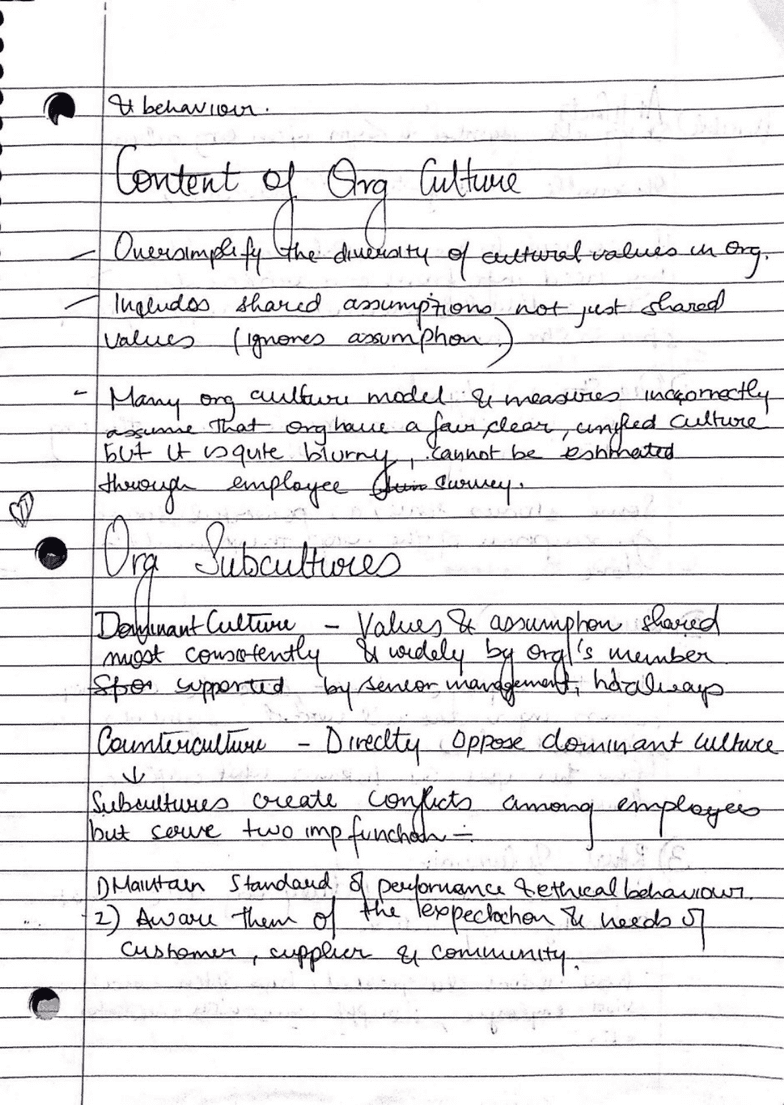 & behaviour.
Content of Org Culture
- Oversimplify the diversity of cultural values in org.
- Includes shared assumptions not just shared
values (ignores assumption)
- Many org culture model & measures incorrectly
assume that org have a fair, clear, unified culture
but it is quite blurry, cannot be estimated
through employee survey.
Org Subcultures
Dominant Culture - Values & assumption shared
most consistently & widely by org's member
supported by senior management, not always
Counterculture - Direclty oppose dominant culture
↓
Subcultures create conflicts among employees
but serve two imp function :-
1) Maintain Standard of performance & ethical behaviour.
2) Aware them of the expectation & needs of
customer, supplier & community.